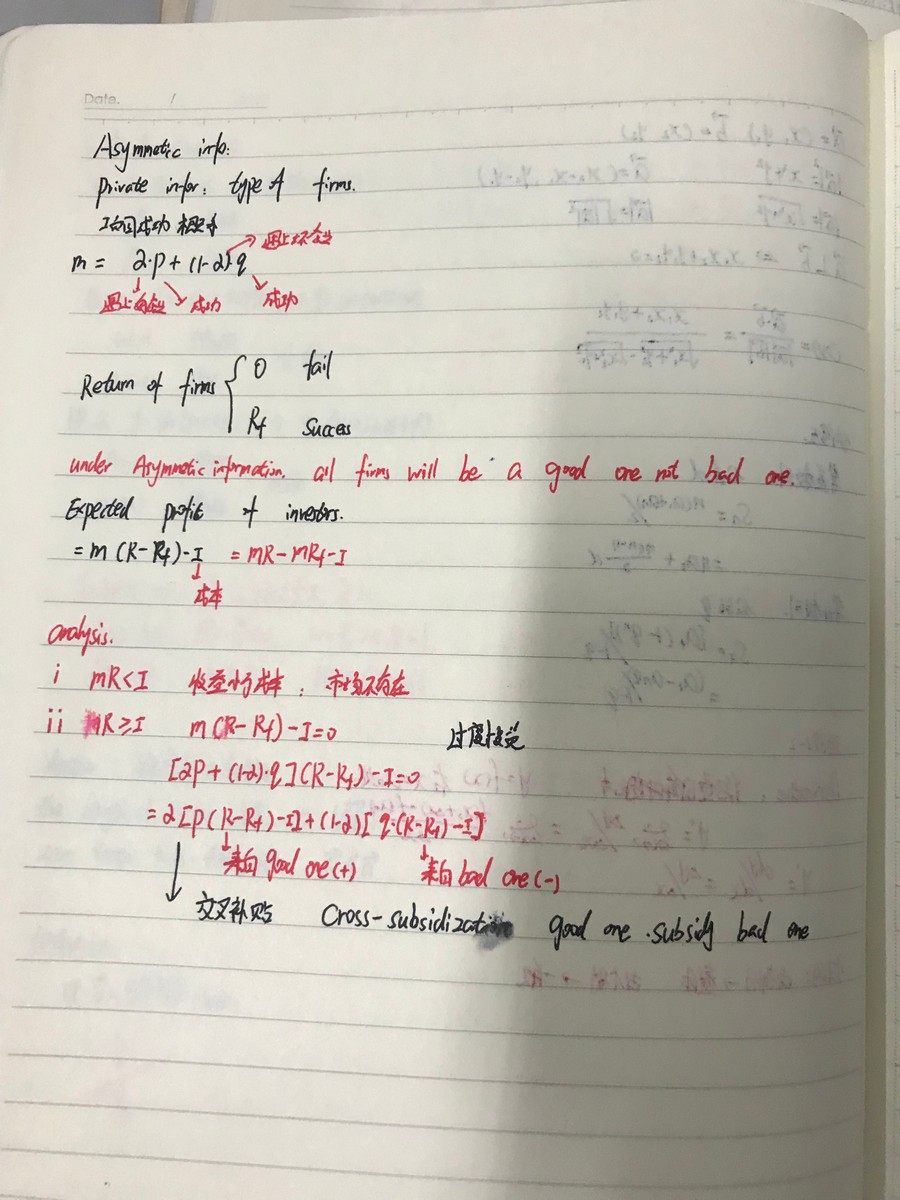 Date. /
Asymmetic info:
Private infor: type of firms.
项目成功概率
→遇上坏企业
m = α·p + (1-α)·q
遇上好企业 成功 成功
Return of firms { 0 fail
Rf Success
under Asymmetic information. all firms will be a good one not bad one.
Expected profit of investors.
= m (R-Rf)-I = mR-mRf-I
↓
成本
analysis.
i mR<I 收益小于成本; 市场不存在
ii mR≥I m(R-Rf)-I=0 过度投资
[αp + (1-α)·q](R-Rf)-I=0
= α[p(R-Rf)-I]+(1-α)[q·(R-Rf)-I]
来自 good one (+) 来自 bad one (-)
交叉补贴 Cross-subsidization good one subsidy bad one